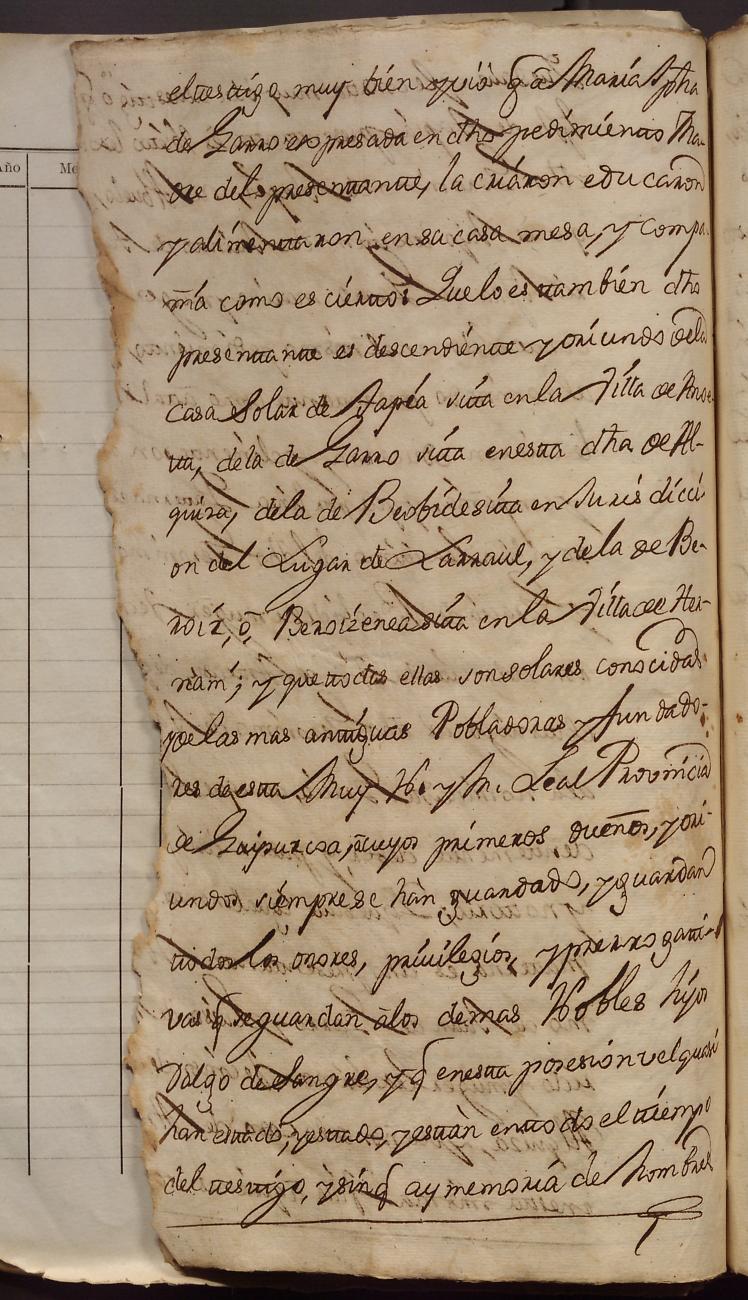 el testigo muy bien, y vió q̃ a Maria Jpha
de Garro expresada en dho pedimiento Ma-
dre del presentante, la criáron educaron
y alimentaron en sa casa mesa, y compa-
ñia como es ciertto: Que lo es tambien dho
presentante es descendiente y oriundo dela
Casa Solar de Tapía sita en la Villa de
ta, dela de Garro sita en esta dha de Al-
quiza, dela de Berbide sita en Jurisdicci-
on del Lugar de Larraul, y dela de Be-
roiz, ó, Beroizenea sita en la Villa de Her-
nani; y que todas ellas son solares conocidas
y delas mas antiguas Pobladoras y fundado-
res de esta Muy N. y M. Leal Provincia
de Guipuzcoa, a cuyos primeros dueños, y ori-
undos siempre se han guardado, y guardan
todos los onores, privilegios, y prerrogati-
vas q̃ se guardan à los demas Nobles hijos
Dalgo de Sangre, y q̃ en esta posesion vel quasi
han estado, y estado, y están en todo el tiempo
del testigo, y sin q̃ ay memoria de hombres
Año
Me